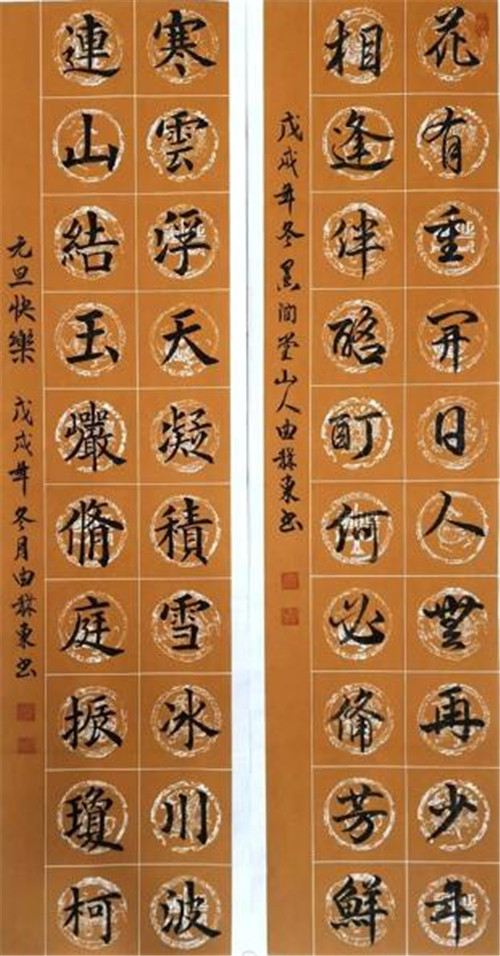 花有重開日人無再少年
相逢伴酩酊何必備芳鮮
戊戌年冬山人由東书
寒雲浮天凝積雪冰川波
連山結玉巖脩庭振瓊柯
元旦快樂 戊戌年冬月由東书